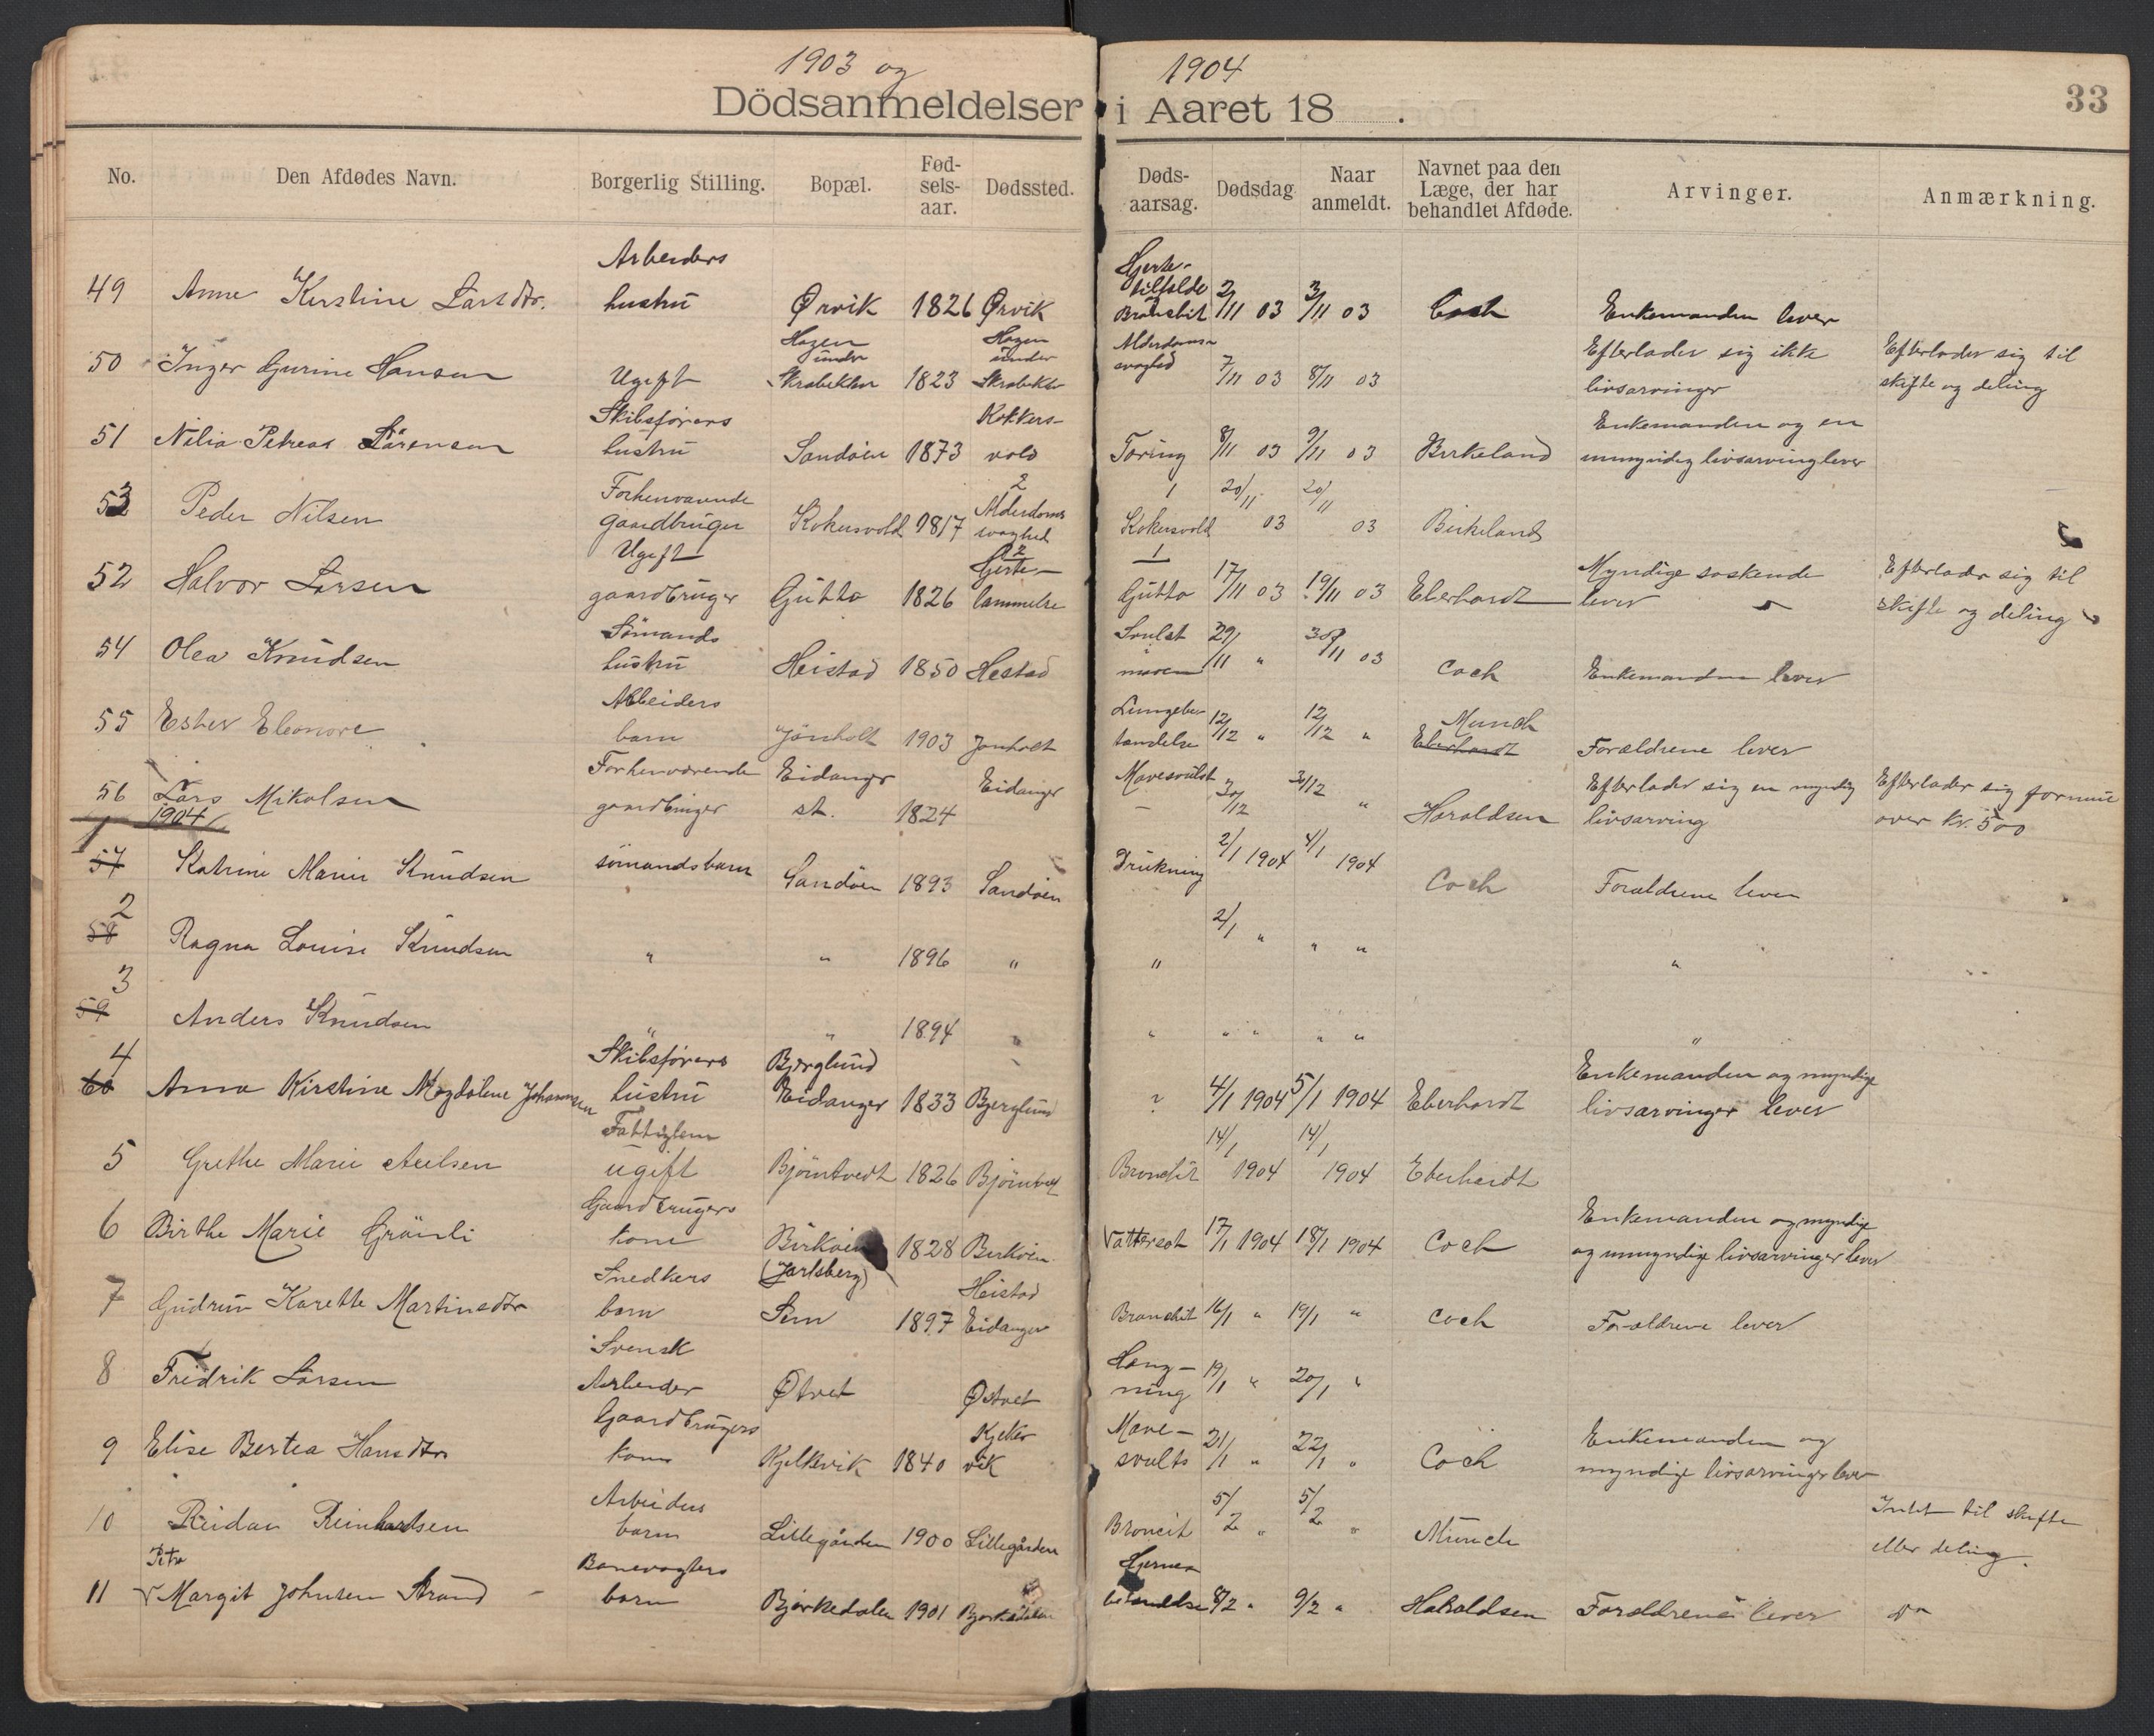 1903 og 1904
Dödsanmeldelser i Aaret 18 .
33
No. Den Afdødes Navn. Borgerlig Stilling. Bopæl. Fød-sels-aar. Dødssted. Døds-aarsag. Dødsdag Naar anmeldt. Navnet paa den Læge, der har behandlet Afdøde. Arvinger. Anmærkning.
Arbeiders Hjerte-
tilfælde
49 Anne Kirstine Larsdtr. hustru Ørvik 1826 Ørvik 2/11 03 3/11 03 Coch Enkemanden lever
Hagen Hagen Alderdoms- Efterlader sig ikke Efterlader sig til
under under
50 Inger Gurine Hansen Ugift 1823 svaghed 7/11 03 8/11 03 livsarvinger skifte og deling
Skibsførers Kokkers- Enkemanden og en
51 Nilia Petrea Sörensen hustru Sandöen 1873 vold Töring 8/11 03 9/11 03 Birkeland umyndig livsarving lever
Forhenværende 2 1 20/11 20/11
53 Peder Nilsen gaardbruger Kokersvold 1817 Alderdoms svaghed Kokersvold 03 03 Birkeland
Ugift 2 Hjerte- 1 Myndige søskende Efterlader sig til
52 Halvor Larsen gaardbruger Gutta 1826 lammelse Gutta 17/11 03 19/11 03 Eberhardt lever skifte og deling
Sömands Svulst
54 Olea Knudsen hustru Heistad 1850 Hestad maven 29/11 " 30/11 03 Coch Enkemanden lever
Arbeiders Lungebe- Munch
55 Ester Eleonore barn Jönholt 1903 Jonholt tændelse 12/12 " 12/12 " Eberhardt Forældrene lever
Forhenværende Eidanger Eidanger Mavesvulst Efterlader sig en myndig Efterlader sig formue
56 Lars Mikalsen gaardbruger st. 1824 30/12 31/12 " Haraldsen livsarving over kr. 500
1904
1
57 Katrine Marie Knudsen sömandsbarn Sandöen 1893 Sandöen Drukning 2/1 1904 4/1 1904 Coch Forældrene lever
2
58 Ragna Louise Knudsen " " 1896 " " 2/1 " " " "
3
59 Anders Knudsen " " 1894 " " " " " " "
4 Skibsførers Bjerglund Enkemanden og myndige
60 Anna Kirstine Magdalene Johannsen hustru Eidanger 1833 Bjerglund ? 4/1 1904 5/1 1904 Eberhardt livsarvinger lever
Fattiglem
5 Grethe Marie Neilsen ugift Björntvedt 1826 Björntvet Bronchit 14/1 1904 14/1 1904 Eberhardt
Gaardbrugers Enkemanden og myndige
6 Birthe Marie Grånli kone Birköen 1828 Birköen Vattersot 17/1 1904 18/1 1904 Coch og umyndige livsarvinger lever
Snedkers (Jarlsberg) Heistad
7 Gudrun Karette Martinsdtr barn Sem 1897 Eidanger Bronchit 16/1 " 19/1 " Coch Forældrene lever
Svensk Hæng-
8 Fridrik Larsen Arbeider Østvet Østvet ning 19/1 " 20/1 "
Gaardbrugers Kjeke Mave- Enkemanden og
9 Elise Bertea Hansdtr kone Kjelkevik 1840 vik svulst 21/1 " 22/1 " Coch myndige livsarvinger lever
Arbeiders Intet til skifte
10 Reidar Reinhardsen barn Lillegården 1900 Lillegården Broncit 5/2 " 5/2 " Münch eller deling.
Petra Banevogters Hjerne-
11 Margit Johnsen Strand barn Bjørkedalen 1901 Bjørkedalen betændelse 8/2 " 9/2 " Haraldsen Forældrene lever